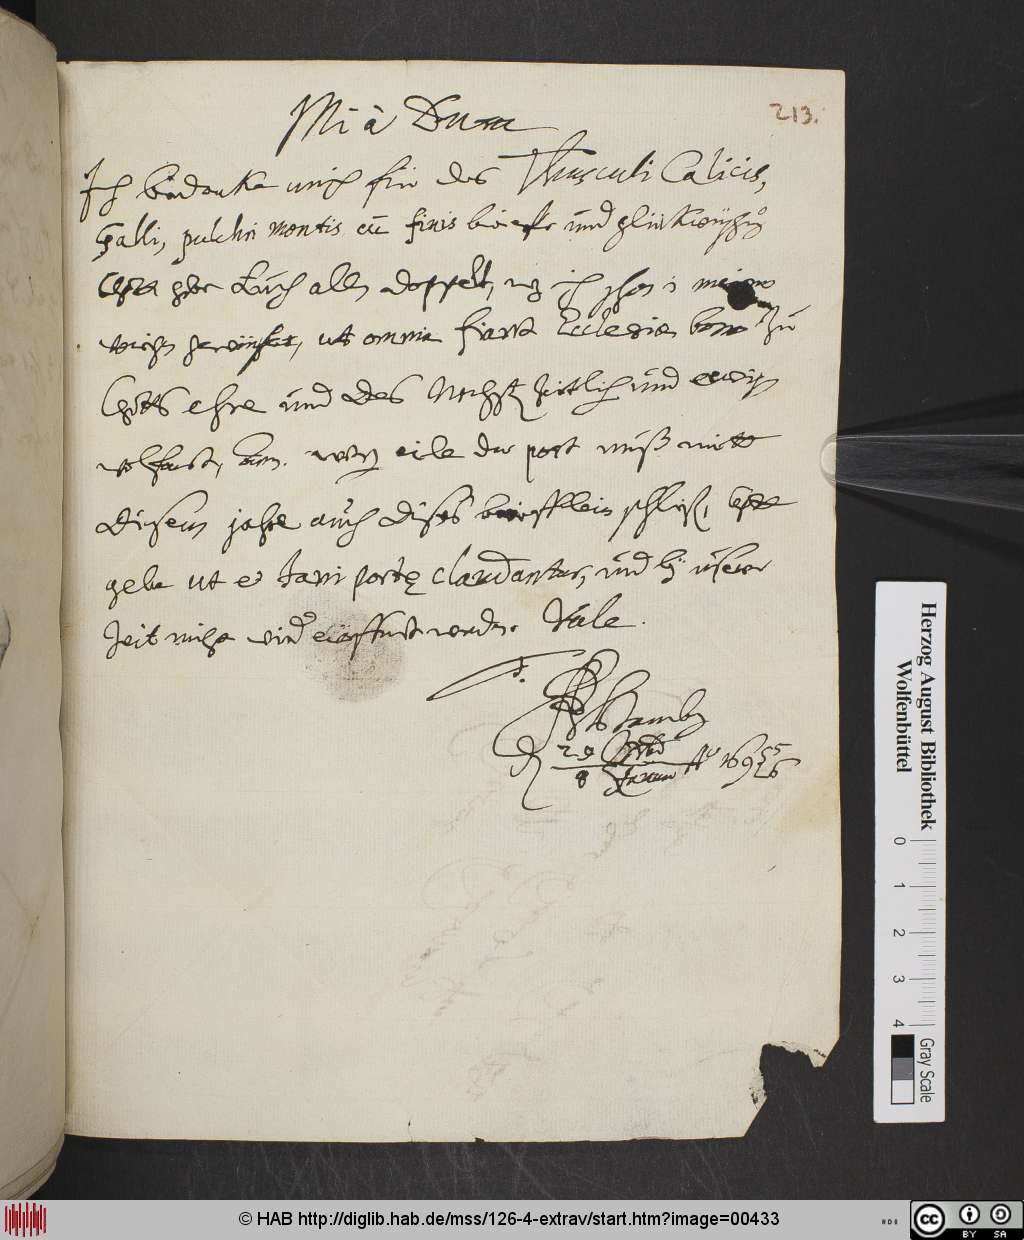 213.
Mi à Dum
Ich bedanke mich für des Thusculi Calicis,
Galli, pulchri montis cũ finis briefe und glükwüsche
Gott gebe Euch alles doppelt, wz ich schon i meinem
wuschen, ut omnia fiant Ecclesiæ bono zu
Gotts ehre und des Nechsten zeitlich und ewig
wolfart, Amen. eile der post muß mitt
diesem jahre auch dises briefflein schließen, Gott
gebe ut et Jani portę claudantur, und zu unserer
Zeit nicht wider eröffnet werden. Vale.
T.
d 29 Decemb
8 Januar Aº 16955
6
Herzog August Bibliothek
Wolfenbüttel
0 1 2 3 4
Gray Scale
© HAB http://diglib.hab.de/mss/126-4-extrav/start.htm?image=00433
cc BY SA